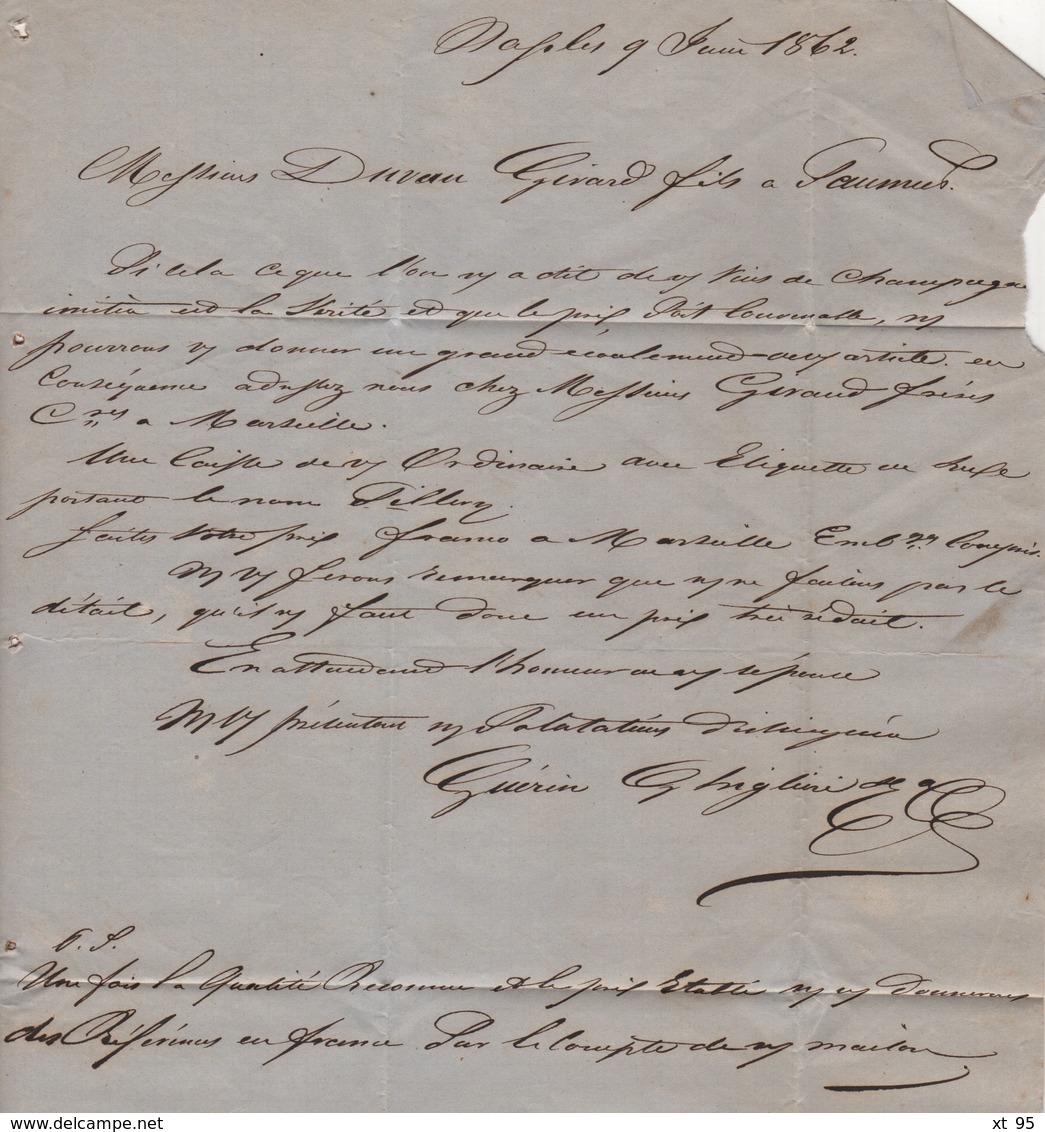 Naples 9 Juin 1862.
Messieurs Duvau Girard fils a Saumur.
Si cela ce que l'on ns a dit de vs Vins de Champagne
imitée est la Vérité et que le prix soit Convenable, ns
pourrons vs donner un grand écoulement a cet article. en
Conséquence adressez nous chez Messieurs Giraud frères
Cres a Marseille.
Une Caisse de vs Ordinaire avec Etiquette de luxe
portant le nom Sillery.
faites votre prix franco a Marseille Emb. Compris.
Ns Vs ferons remarquer que ns ne faisons pas le
détail, qu'il ns faut donc un prix très réduit.
En attendant l'honneur de vs réponse
Ns Vs présentons ns Salutations distinguées
Guérin Ghiglieri & Ce
P.S.
Une fois la Qualité Reconnue et le prix Etabli ns vs donnerons
des Références en france Sur le Compte de ns maison
xt 95
www.delcampe.net